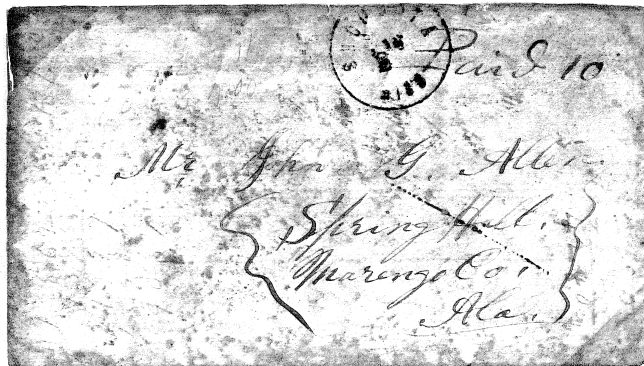 Paid 10
Mr John G. Allen
Spring Hill.
Marengo Co.
Ala.